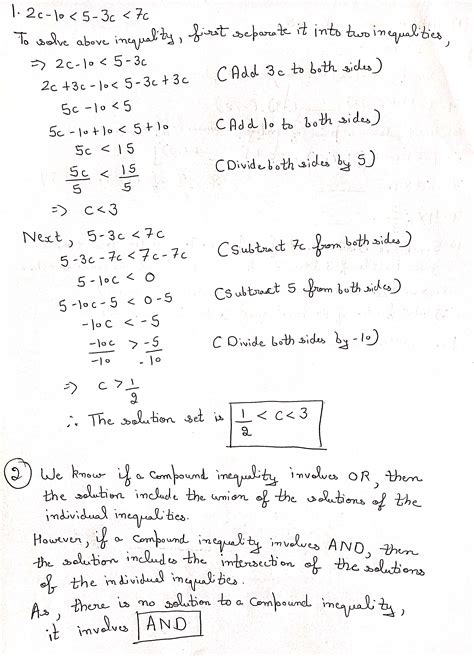 1. 2c-10 < 5-3c < 7c
To solve above inequality, first seperate it into two inequalities,
⇒ 2c-10 < 5-3c
2c+3c-10 < 5-3c+3c (Add 3c to both sides)
5c-10 < 5
5c-10+10 < 5+10 (Add 10 to both sides)
5c < 15
5c/5 < 15/5 (Divide both sides by 5)
⇒ c<3
Next, 5-3c < 7c
5-3c-7c < 7c-7c (Subtract 7c from both sides)
5-10c < 0
5-10c-5 < 0-5 (Subtract 5 from both sides)
-10c < -5
-10c/-10 > -5/-10 (Divide both sides by -10)
⇒ c > 1/2
∴ The solution set is 1/2 < c < 3
2 We know if a compound inequality involves OR, then
the solution include the union of the solutions of the
individual inequalities.
However, if a compound inequality involves AND, then
the solution includes the intersection of the solutions
of the individual inequalities.
As, there is no solution to a compound inequality,
it involves AND